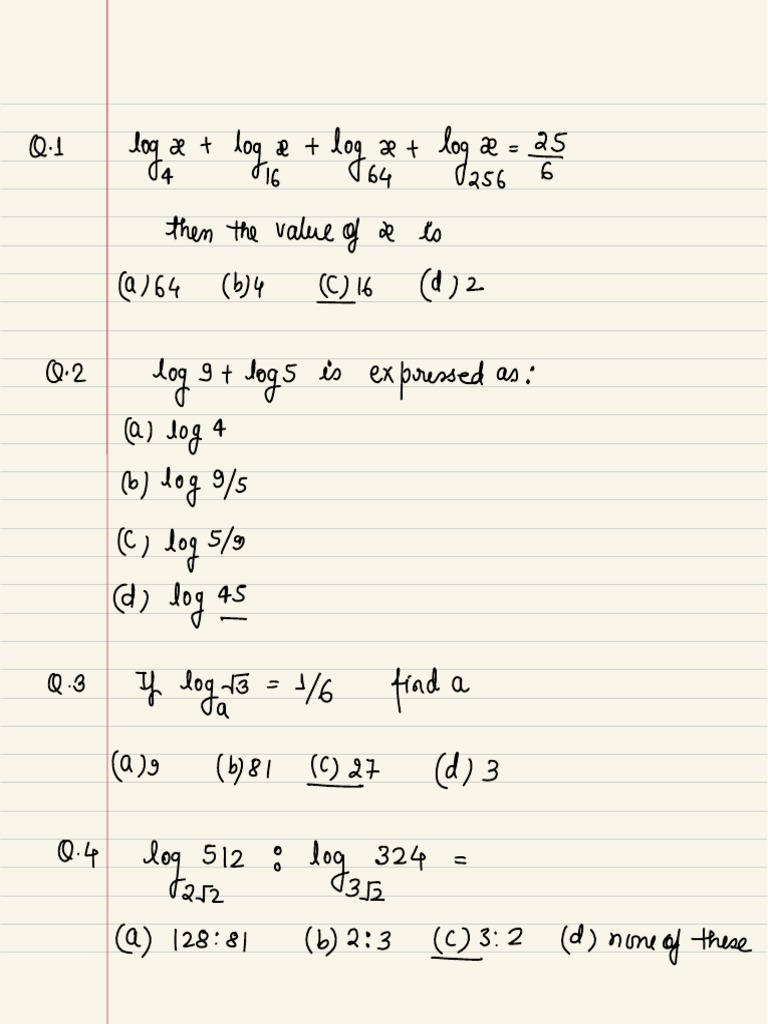 Q.1 log₄ x + log₁₆ x + log₆₄ x + log₂₅₆ x = 25/6
then the value of x is
(a) 64 (b) 4 (C) 16 (d) 2
Q.2 log 9 + log 5 is expressed as:
(a) log 4
(b) log 9/5
(C) log 5/9
(d) log 45
Q.3 If logₐ √3 = 1/6 find a
(a) 9 (b) 81 (C) 27 (d) 3
Q.4 log_{2√2} 512 : log_{3√2} 324 =
(a) 128:81 (b) 2:3 (C) 3:2 (d) none of these